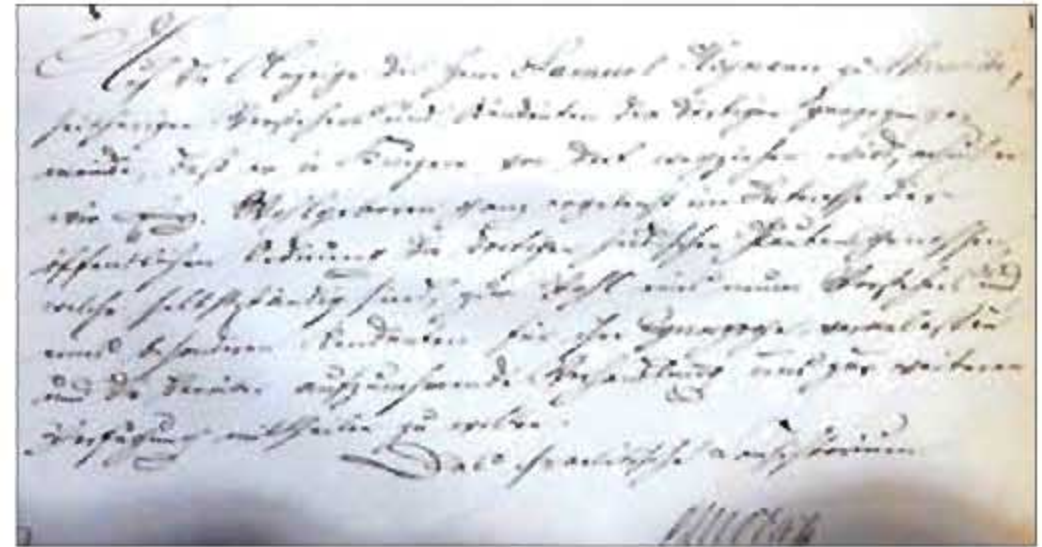 Auf die Anzeige des Herrn Samuel
seitherigen Vorstehers und Rendanten der dortigen Synagogenge-
meinde, daß er in Kurzem von dort wegziehen wird,
wir Wohlgeboren ganz ergebenst im Interesse der
öffentlichen Ordnung die dortigen jüdischen
welche selbstständig sind, zur Wahl eines neuen Vorstehers und
eines besonderen Rendanten für ihre Synagoge
und die darüber aufzunehmende Verhandlung uns zur weiteren
Verfügung mittheilen zu wollen.
Das israelitische Consistorium